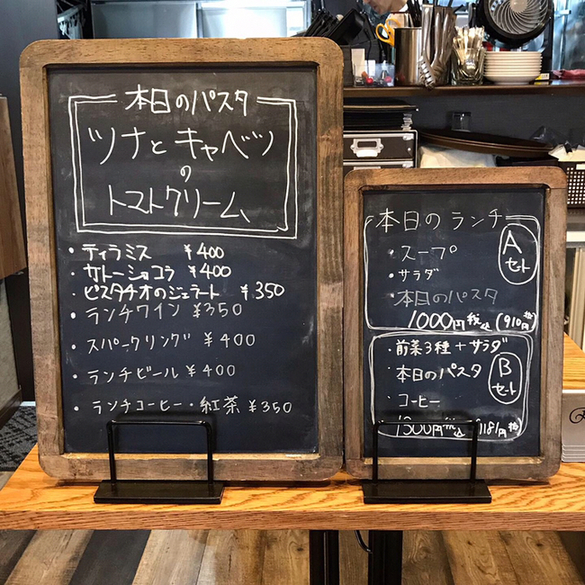 本日のパスタ
ツナとキャベツ
の
トマトクリーム、
・ティラミス ¥400
・ガトーショコラ ¥400
・ピスタチオのジェラート ¥350
・ランチワイン ¥350
・スパークリング ¥400
・ランチビール ¥400
・ランチコーヒー・紅茶 ¥350
本日のランチ
Aセット
・スープ
・サラダ
・本日のパスタ
1000円税込(910円税抜)
・前菜3種+サラダ
・本日のパスタ
Bセット
・コーヒー
1300円税込(1181円税抜)